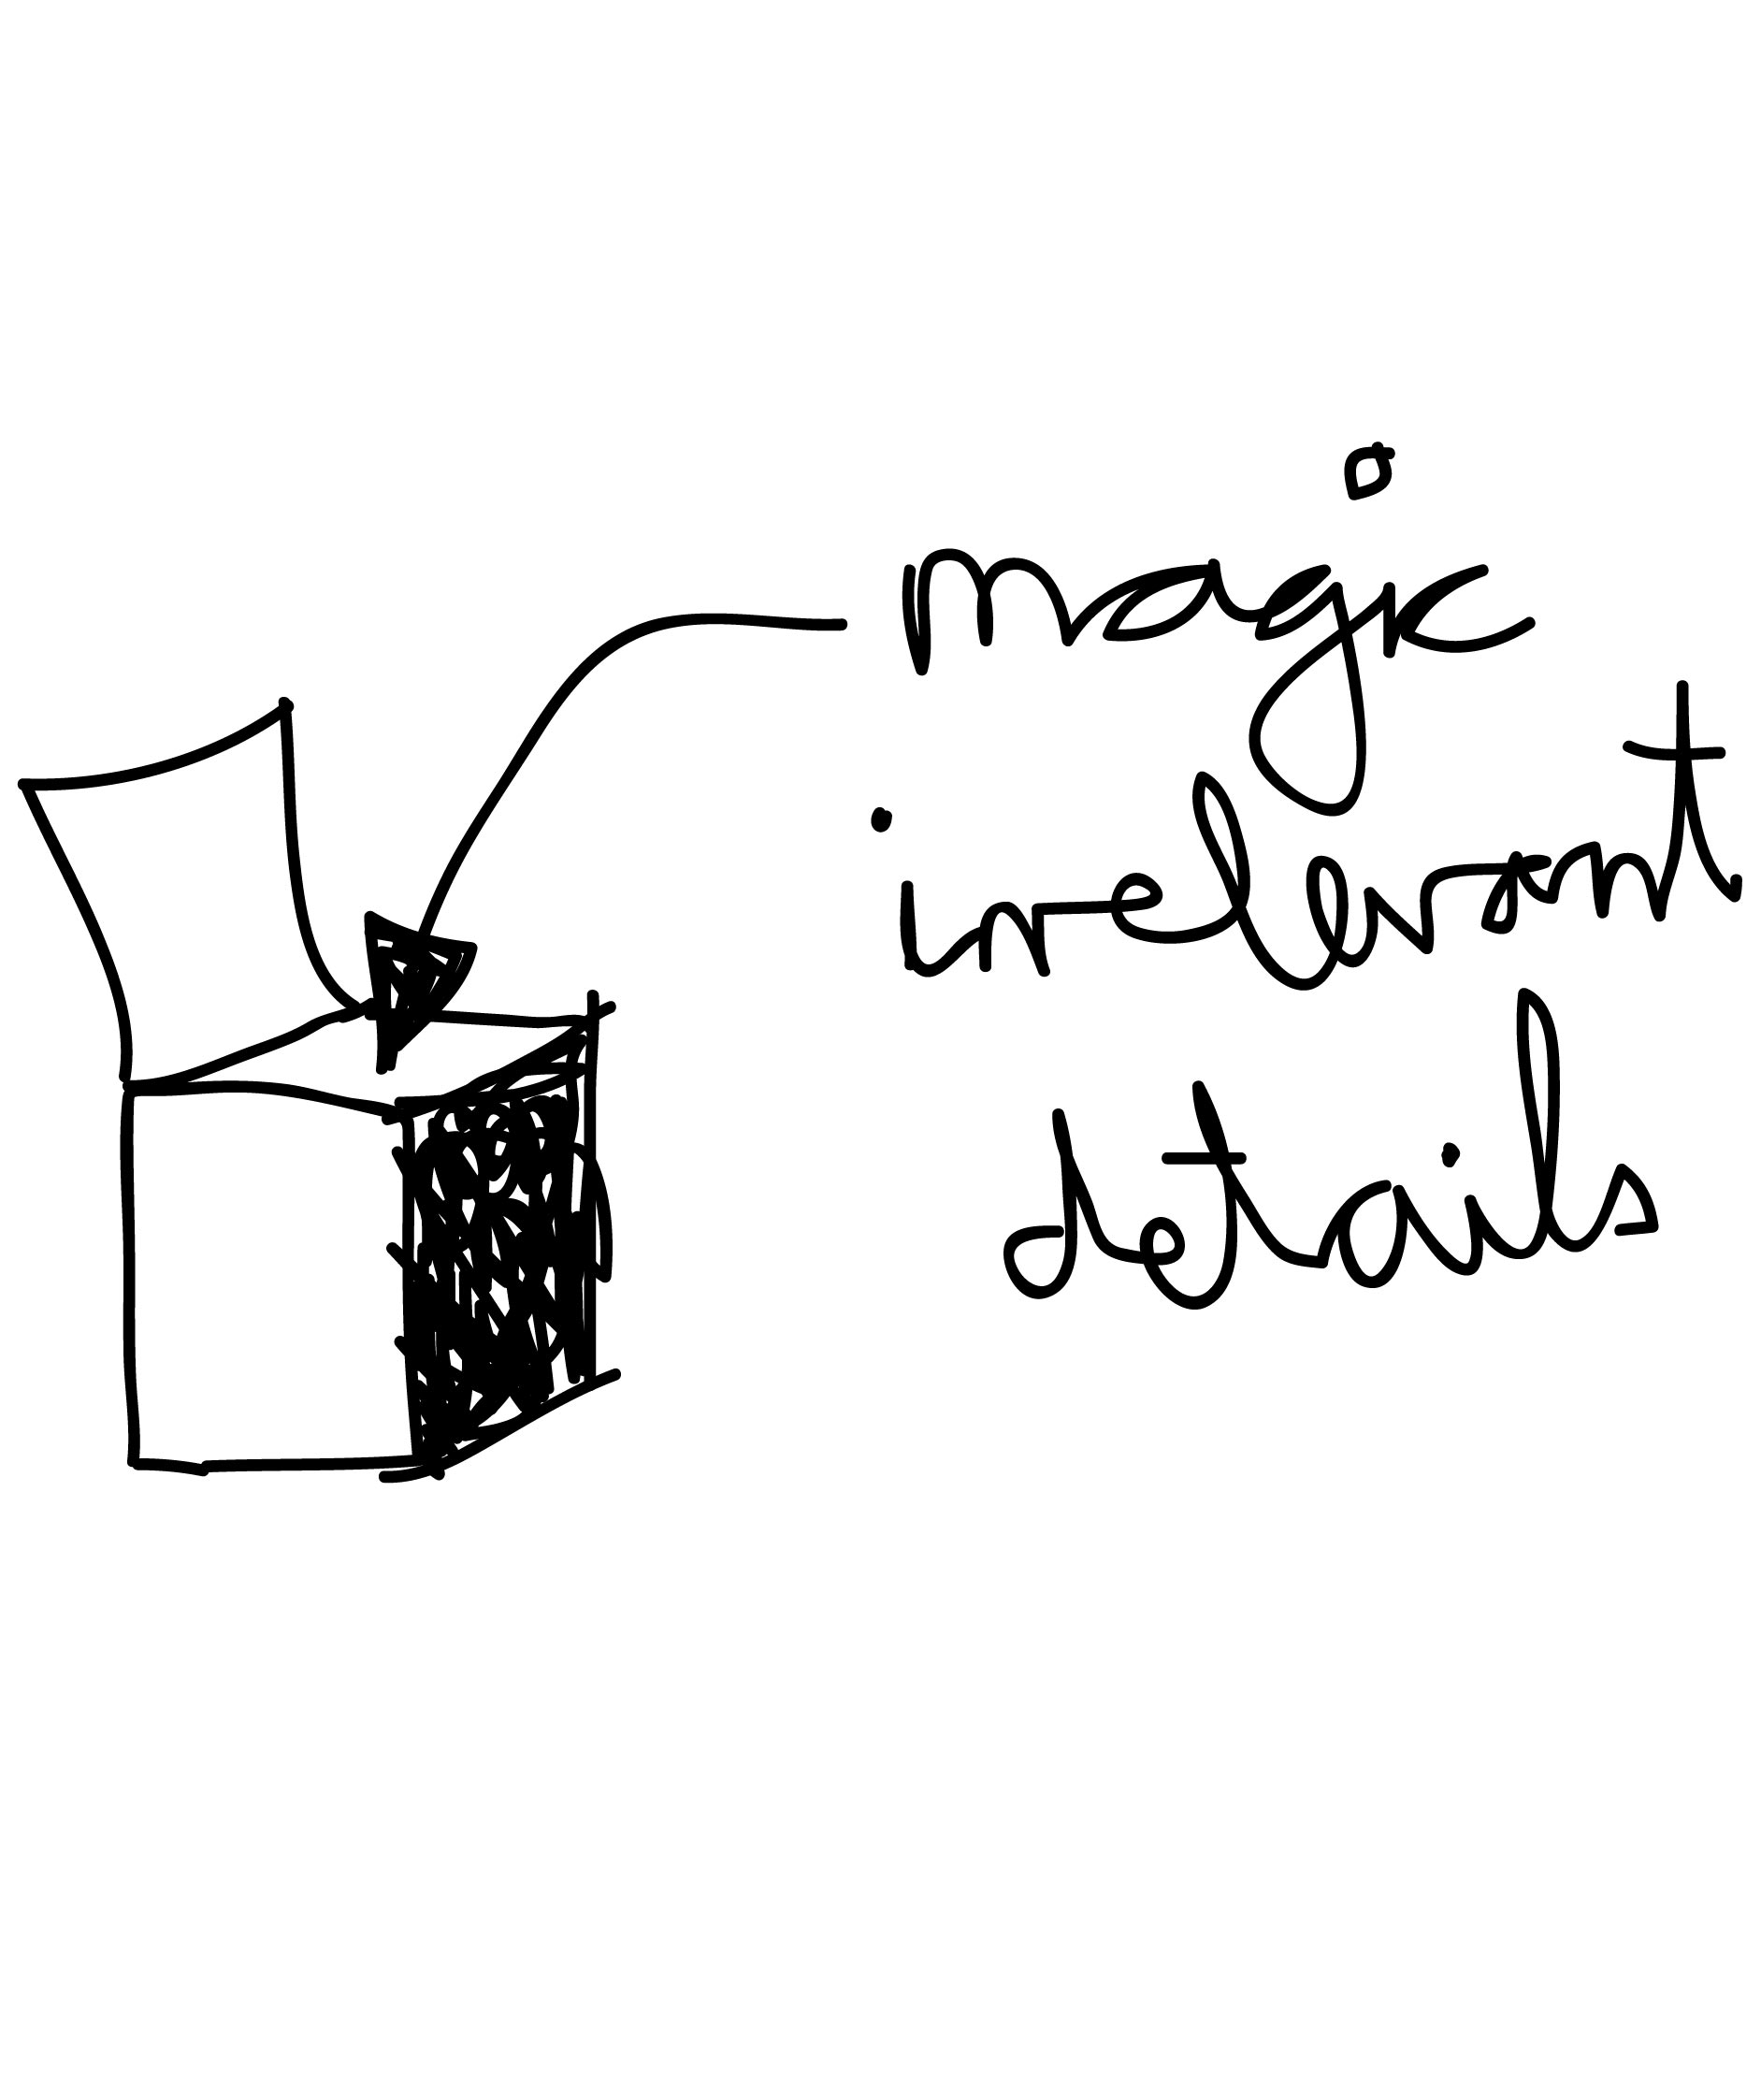 magic
irrelevant
details